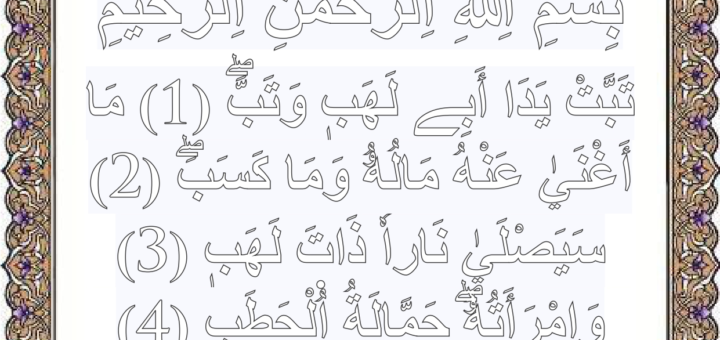 بِسْمِ اِ۬للَّهِ اِ۬لرَّحْمَٰنِ اِ۬لرَّحِيمِ
تَبَّتْ يَدَا أَبِے لَهَبٖ وَتَبَّۖ (1) مَا
أَغْنَىٰ عَنْهُ مَالُهُۥ وَمَا كَسَبَۖ (2)
سَيَصْلَىٰ نَاراٗ ذَاتَ لَهَبٖ (3)
وَامْرَأَتُهُۥۖ حَمَّالَةُ اُ۬لْحَطَبِ (4)